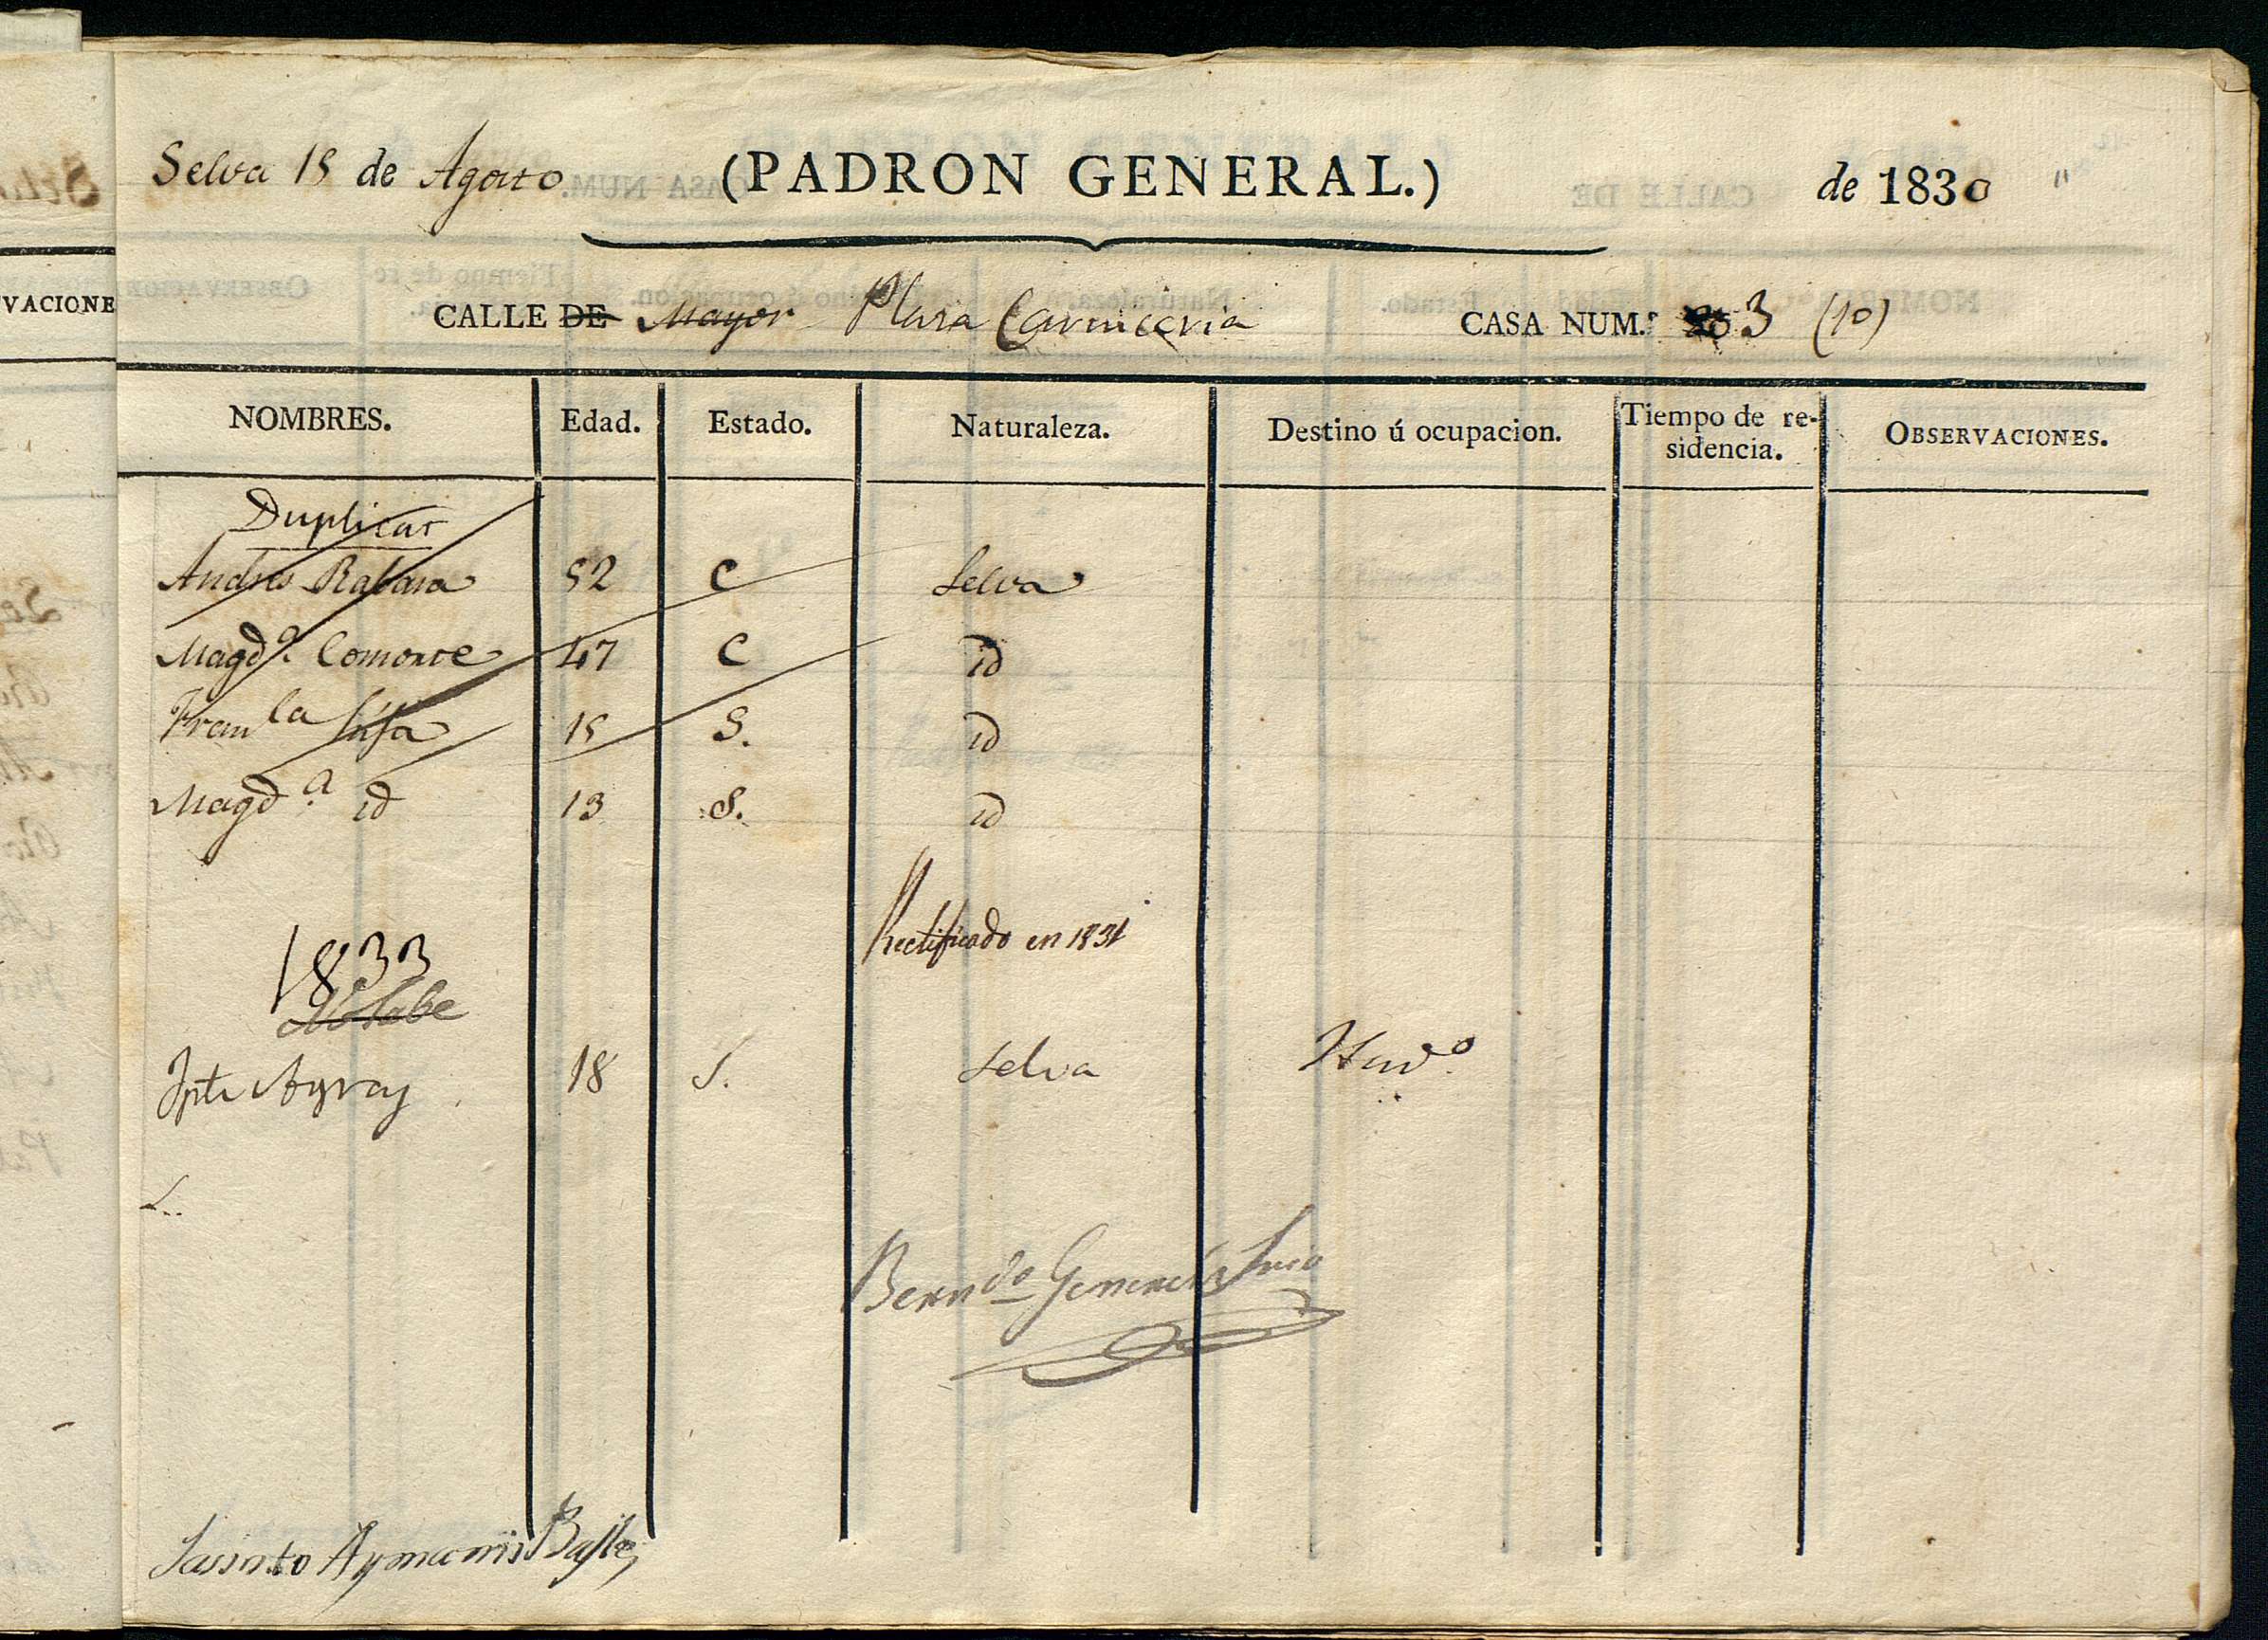 Selva 15 de Agosto (PADRON GENERAL.) de 1830 "
CALLE DE Mayor Plasa Carniceria CASA NUM.º 3 (10)
NOMBRES. Edad. Estado. Naturaleza. Destino ú ocupacion. Tiempo de re-sidencia. OBSERVACIONES.
Duplicat
Andres Rabasa 52 C Selva
Magd.ª Comorte 47 C id
Fran la hija 15 S. id
Magd.ª id 13 S. id
Rectificado en 1831
1833
Aygvoy 18 S. Selva
Bern.do Secio
Jassinto Aymamis Bayle
VACIONE